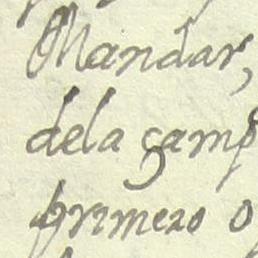 Mandar,
dela çamp
primero o